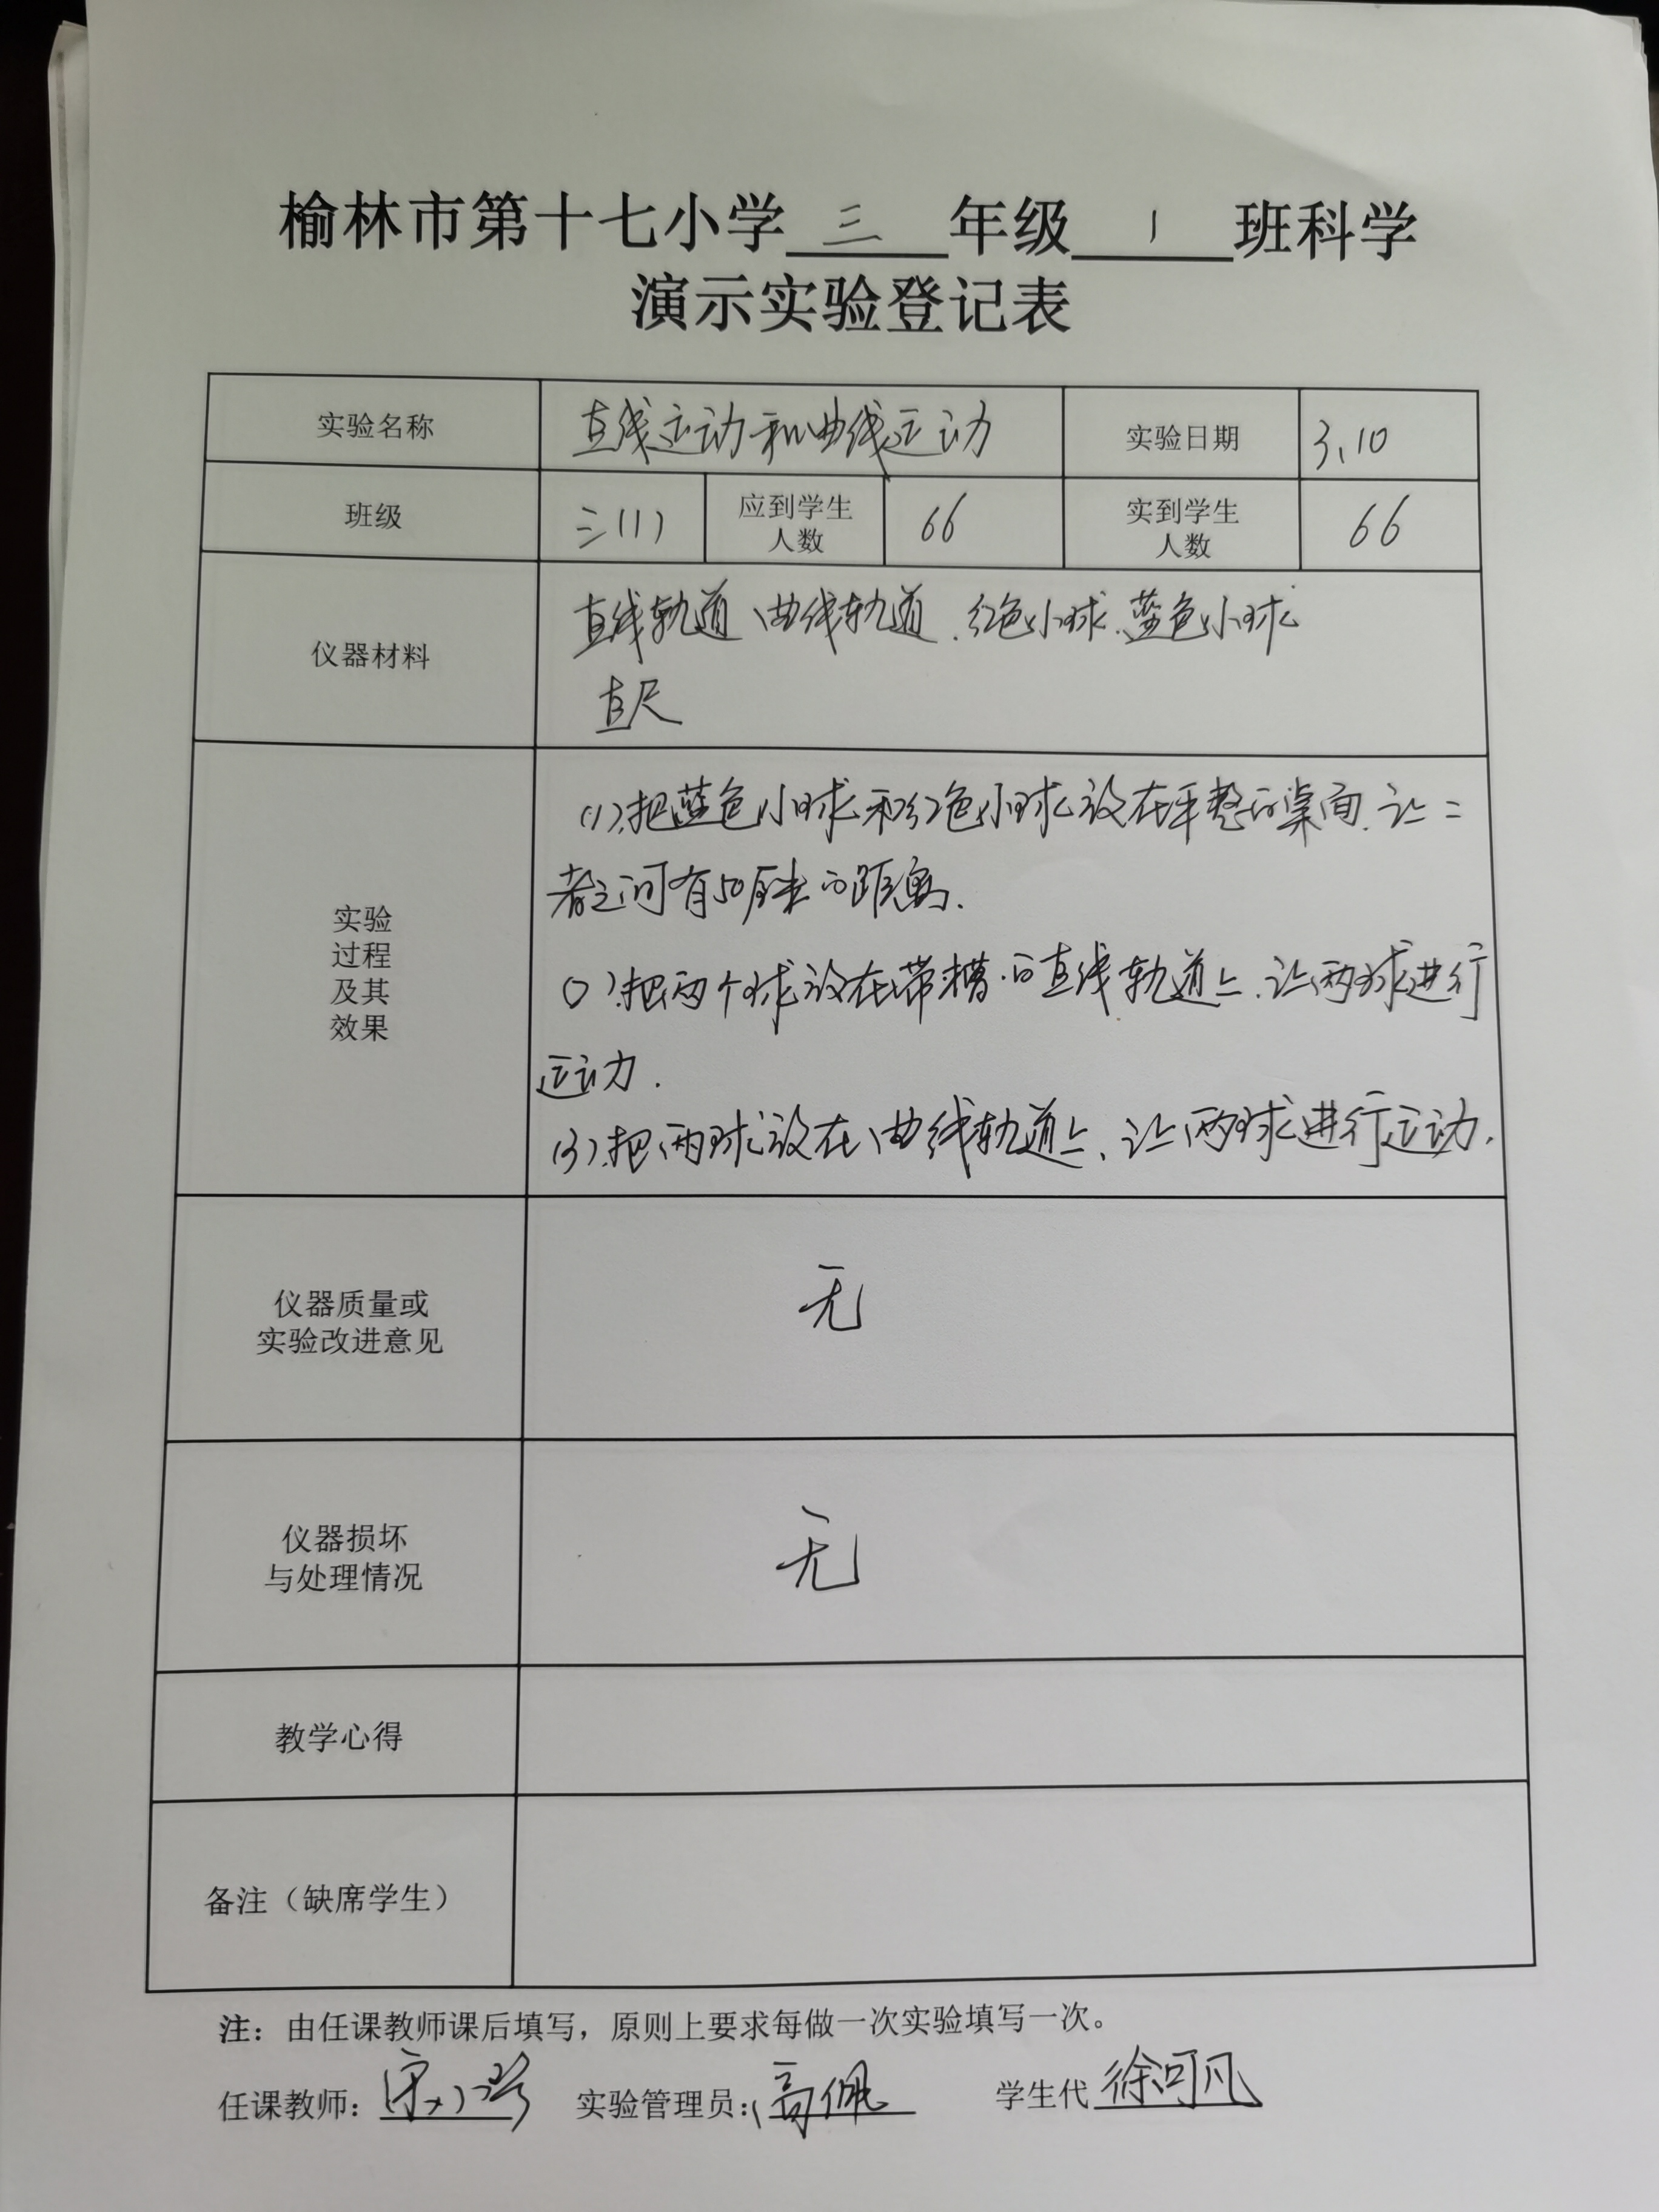 榆林市第十七小学 三 年级 1 班科学
演示实验登记表
实验名称 直线运动和曲线运动 实验日期 3、10
班级 三(1) 应到学生人数 66 实到学生人数 66
仪器材料 直线轨道、曲线轨道、红色小球、蓝色小球
直尺
实验
过程
及其
效果
(1).把蓝色小球和红色小球放在平整的桌面.让二
者之间有50厘米的距离.
(2).把两个球放在带槽的直线轨道上.让两球进行
运动.
(3).把两球放在曲线轨道上、让两球进行运动.
仪器质量或
实验改进意见
无
仪器损坏
与处理情况
无
教学心得
备注（缺席学生）
注：由任课教师课后填写，原则上要求每做一次实验填写一次。
任课教师： 实验管理员: 高佩 学生代 徐可凡